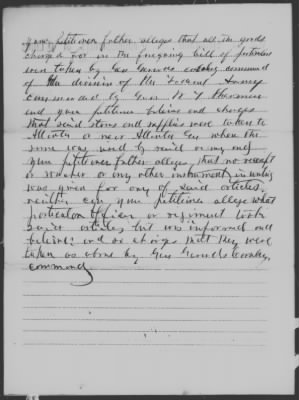 your petitioner further alleges that all the goods
charged for in the foregoing bill of particulars
were taken by Gen Gerrards cavalry command
of the division of the Federal Army
commanded by Genl W T Sherman
and your petitioner believes and charges
that said stores and supplies were taken to
Atlanta or near Atlanta Geo where the
same was used by said army and
your petitioner further alleges, that no receipt
or voucher or any other instrument in writing
was given for any of said articles.
neither can your petitioner allege what
particular officer or regiment took
said articles, but was informed and
believes and so charges that they were
taken as above by Gen Gerrards Cavalry
command